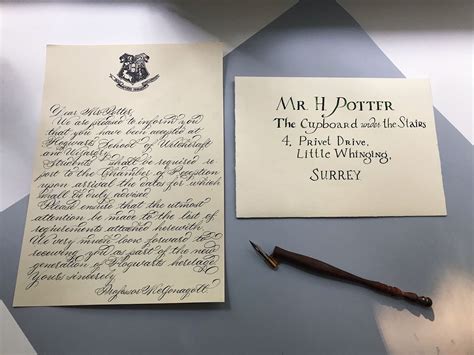 Dear Mr Potter,
We are pleased to inform you
that you have been accepted at
Hogwarts School of Witchcraft
and Wizardry.
Students shall be required to
port to the Chamber of Reception
upon arrival, the dates for which
shall be duly advised.
Please ensure that the utmost
attention be made to the list of
requirements attached herewith.
We very much look forward to
receiving you as part of the new
generation of Hogwarts heritage.
Yours sincerely,
Professor McGonagall
Mr. H Potter
The Cupboard under the Stairs
4, Privet Drive,
Little Whinging,
SURREY